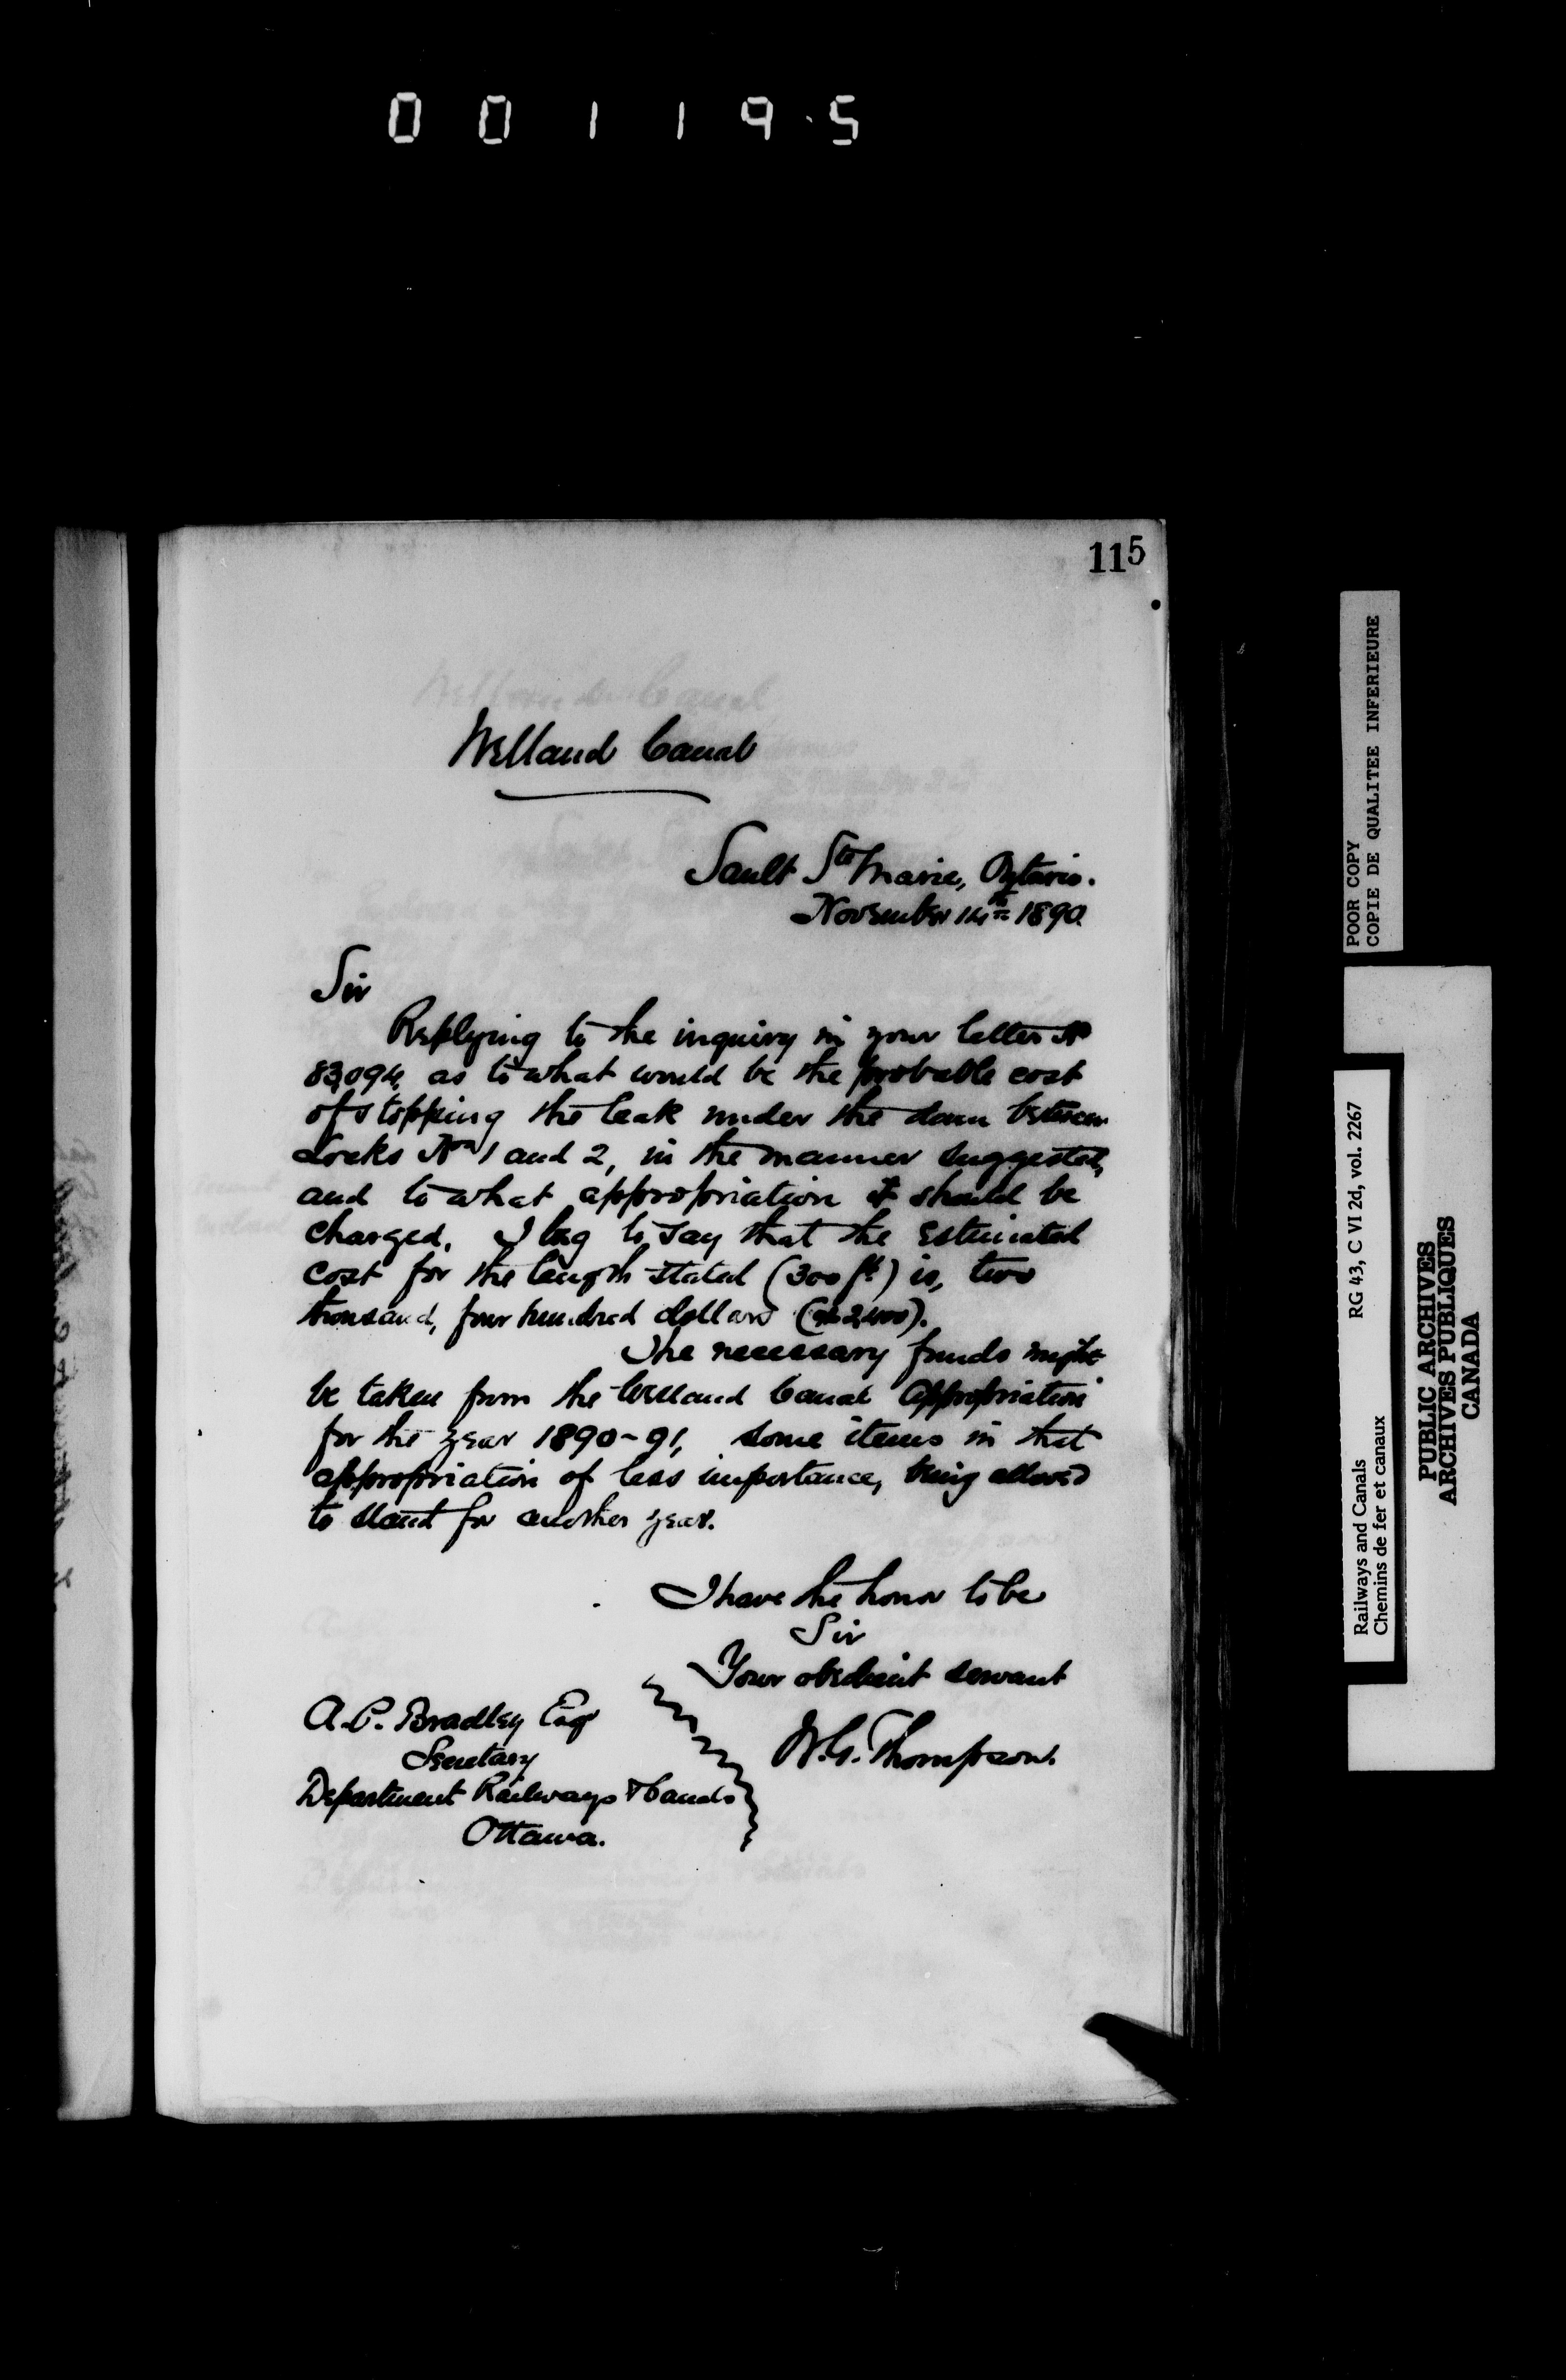 001195
115
Welland Canal
Sault Ste Marie, Ontario.
November 14th 1890.
Sir
Replying to the inquiry in your letter No
83,094, as to what would be the probable cost
of stopping the leak under the dam between
Locks Nos 1 and 2, in the manner suggested,
and to what appropriation it should be
charged, I beg to say that the estimated
cost for the length stated (300 ft) is, two
thousand, four hundred dollars ($2,400).
The necessary funds might
be taken from the Welland Canal Appropriation
for the year 1890-91, some items in that
appropriation of less importance, being allowed
to stand for another year.
I have the honor to be
Sir
Your obedient servant
W.G. Thompson.
A.P. Bradley Esqr
Secretary
Department Railways & Canals
Ottawa.
POOR COPY
COPIE DE QUALITEE INFERIEURE
RG 43, C VI 2d, vol. 2267
Railways and Canals
Chemins de fer et canaux
PUBLIC ARCHIVES
ARCHIVES PUBLIQUES
CANADA